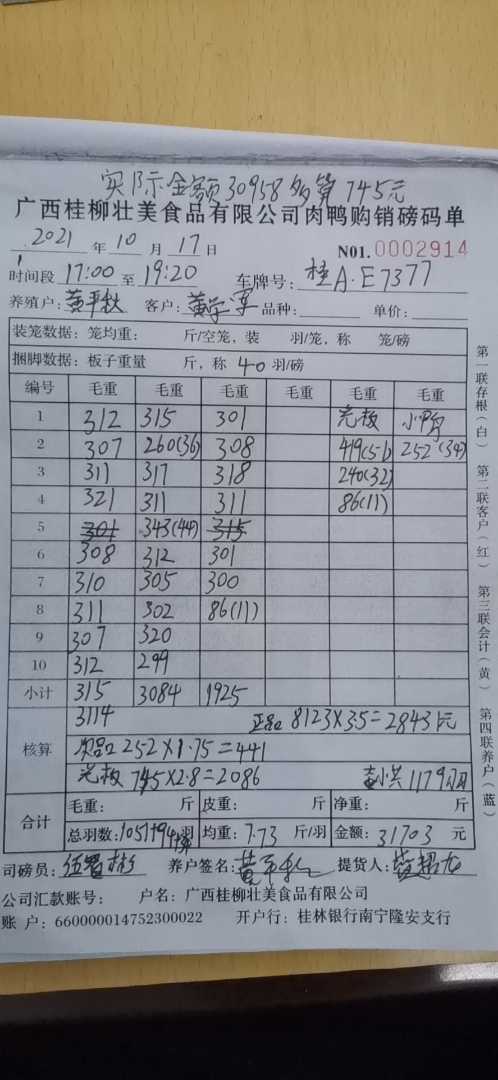 实际示金额30958多算745元
广西桂柳壮美食品有限公司肉鸭购销磅码单
2021 年 10 月 17 日 N01.0002914
时间段 17:00 至 19:20 车牌号: 桂A·E7377
养殖户: 黄平秋 客户: 品种: 单价:
装笼数据: 笼均重: 斤/空笼, 装 羽/笼, 称 笼/磅
捆脚数据: 板子重量 斤, 称 40 羽/磅
编号 毛重 毛重 毛重 毛重 毛重 毛重
1 312 315 301 光板 小鸭
2 307 260(36) 308 419(51) 252(34)
3 311 317 318 240(32)
4 321 311 311 86(11)
5 301 343(44) 315
6 308 312 301
7 310 305 300
8 311 302 86(11)
9 307 320
10 312 299
小计 315 3084 1925
核算 3114 正品 8123×3.5=28431元
次品 252×1.75=441
光板 745×2.8=2086 1179羽
合计 毛重: 斤 皮重: 斤 净重: 斤
总羽数: 1051+94羽 均重: 7.73 斤/羽 金额: 31703 元
司磅员: 养户签名: 黄平秋 提货人:
公司汇款账号: 户名: 广西桂柳壮美食品有限公司
账 户: 660000014752300022 开户行: 桂林银行南宁隆安支行
第一联存根(白) 第二联客户(红) 第三联会计(黄) 第四联养户(蓝)